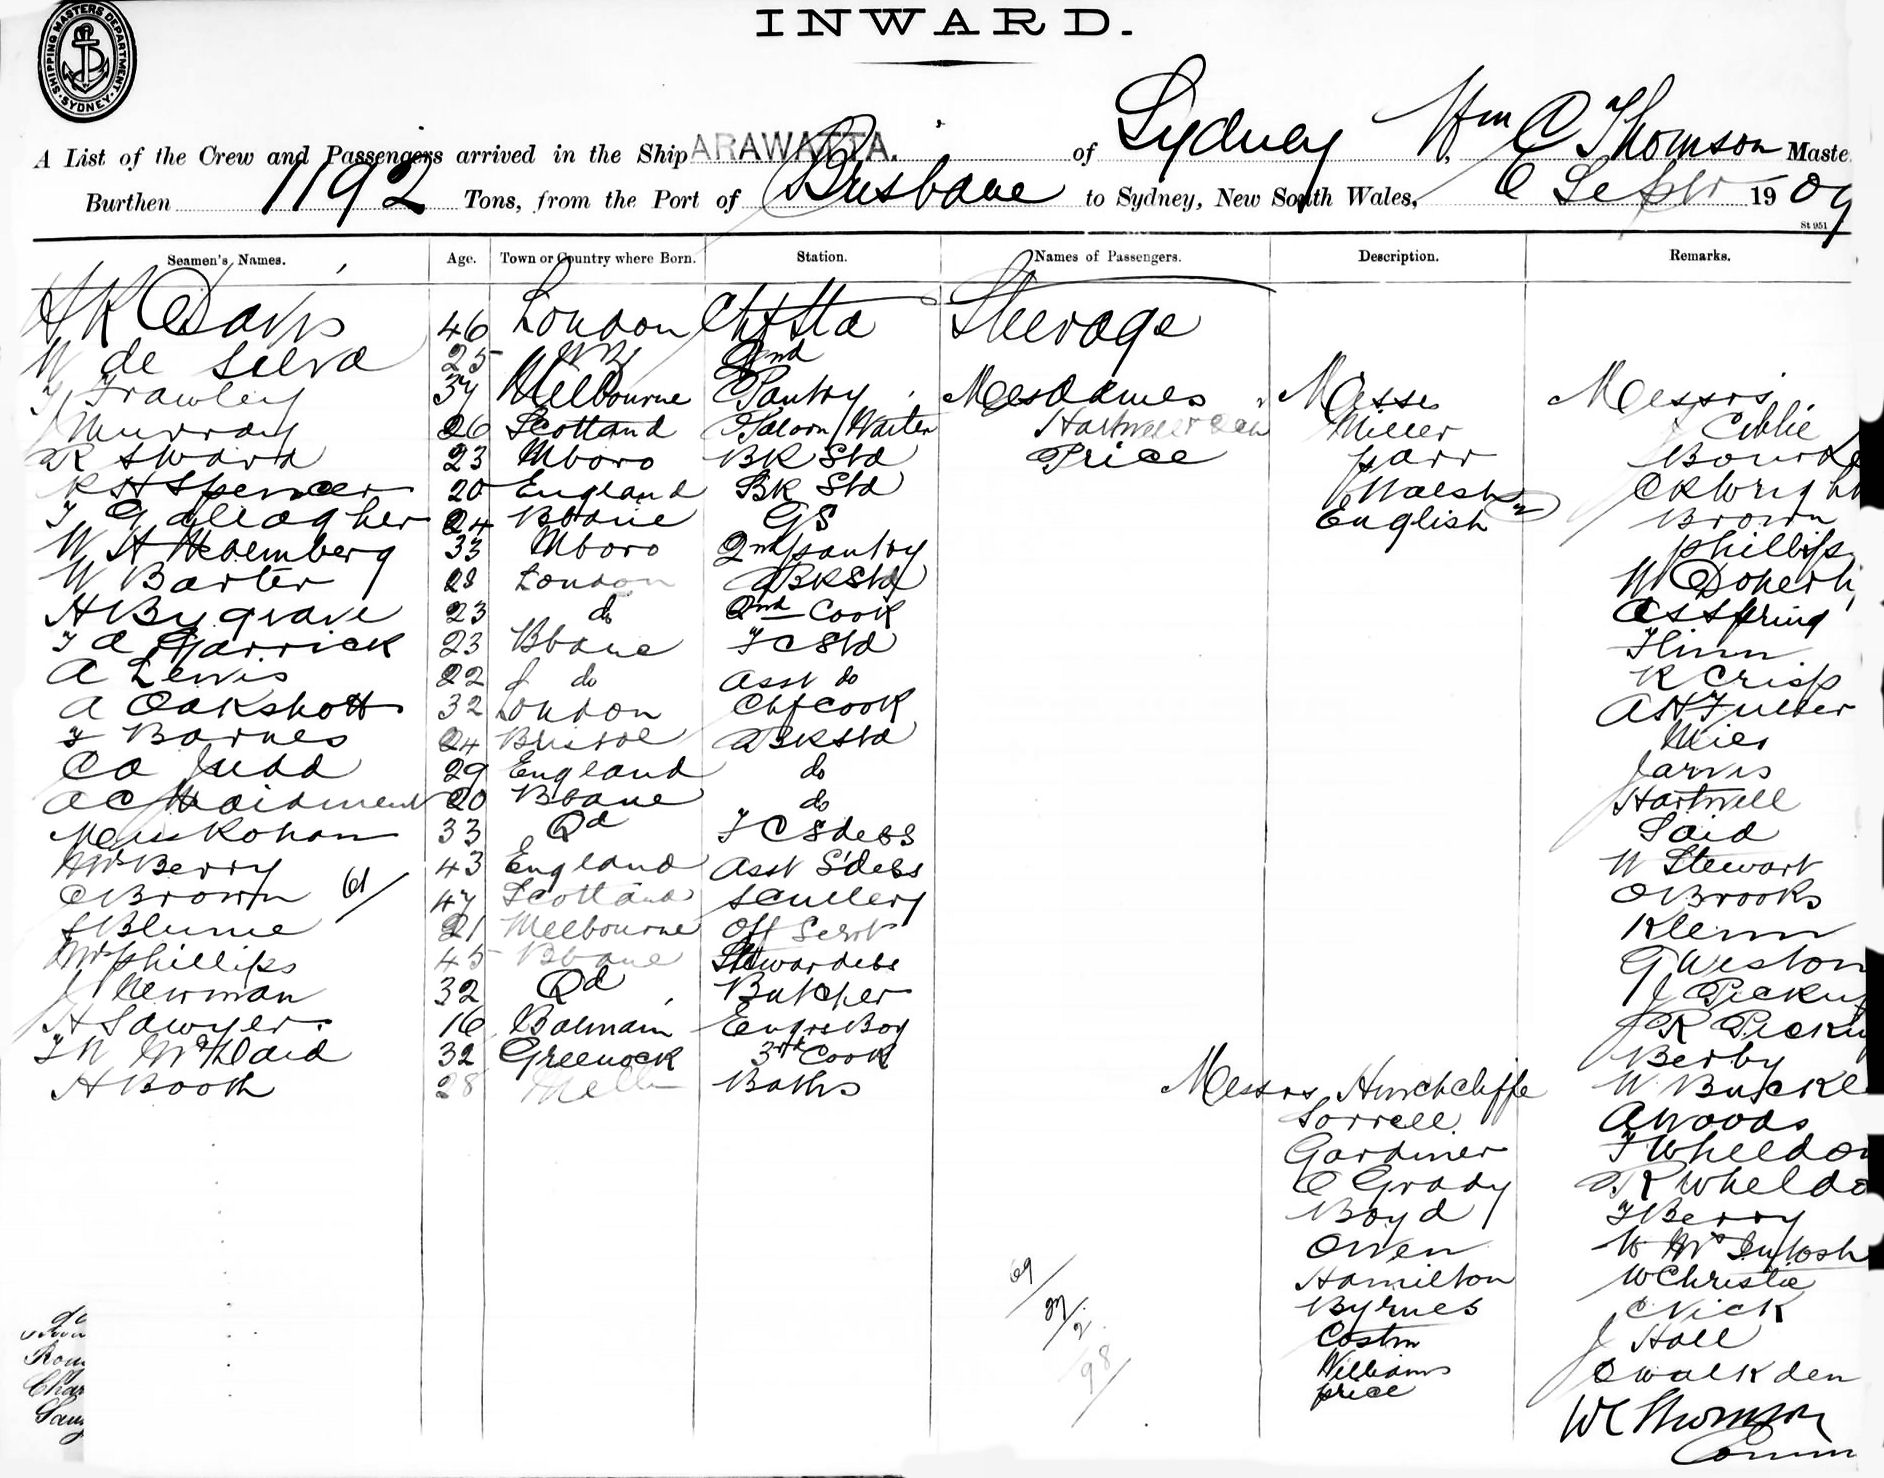 INWARD.
SHIPPING MASTERS DEPARTMENT SYDNEY
A List of the Crew and Passengers arrived in the Ship ARAWATTA. of Sydney Wm C Thomson Maste
Burthen 1192 Tons, from the Port of Brisbane to Sydney, New South Wales, 6 Septr 1909
St 951
Seamen's Names. Age. Town or Country where Born. Station. Names of Passengers. Description. Remarks.
H K Davis 46 London Chf Std Steerage
W de Silva 25 2nd
T Frawley 37 Melbourne Pantry Mesdames Misses Messrs
Murray 26 Scotland Saloon Waiter Miller
R Sward 23 Mboro BK Std Price Parr Bourke
R H Spencer 20 England BK Std Walsh C K Wright
T Gallagher 24 Bbane GS English Brown
W H 33 Mboro 2nd pantry Phillips
W Barter 28 London A BK Std W Doherty
H Bygrave 23 do 2nd Cook A S Spring
F A Garrick 23 Bbane F C Std Flinn
A Lewis 22 do Asst do R Crisp
A Oakshott 32 London Chf Cook A H Fuller
F Barnes 24 Bristol A BK Std Mies
C A Judd 29 England do Jarvis
A C Maidment 20 Bbane do Hartwell
Miss Rohan 33 Qd F C S'dess Said
Mrs Berry 43 England Asst S'dess W Stewart
C Brown 61 47 Scotland Scullery O Brooks
S Blume 21 Melbourne Off Servt Klenn
Mrs Phillips 45 Bbane Stewardess G Weston
J Newman 32 Qd Butcher J Pickup
H Sawyer 16 Balmain Engrs Boy R Pickup
F W McDaid 32 Greenock 3rd Cook Berby
H Booth 28 Baths Messrs Hinchcliffe W Buckle
Sorrell A Woods
Gardiner F Wheeldon
O Grady R Wheldo
Boyd F Berry
Owen W McIntosh
69 Hamilton W Christie
27 Byrnes C Nick
2 Costin J Hall
98 Williams O Walkden
Price
W C Thomson
Comm